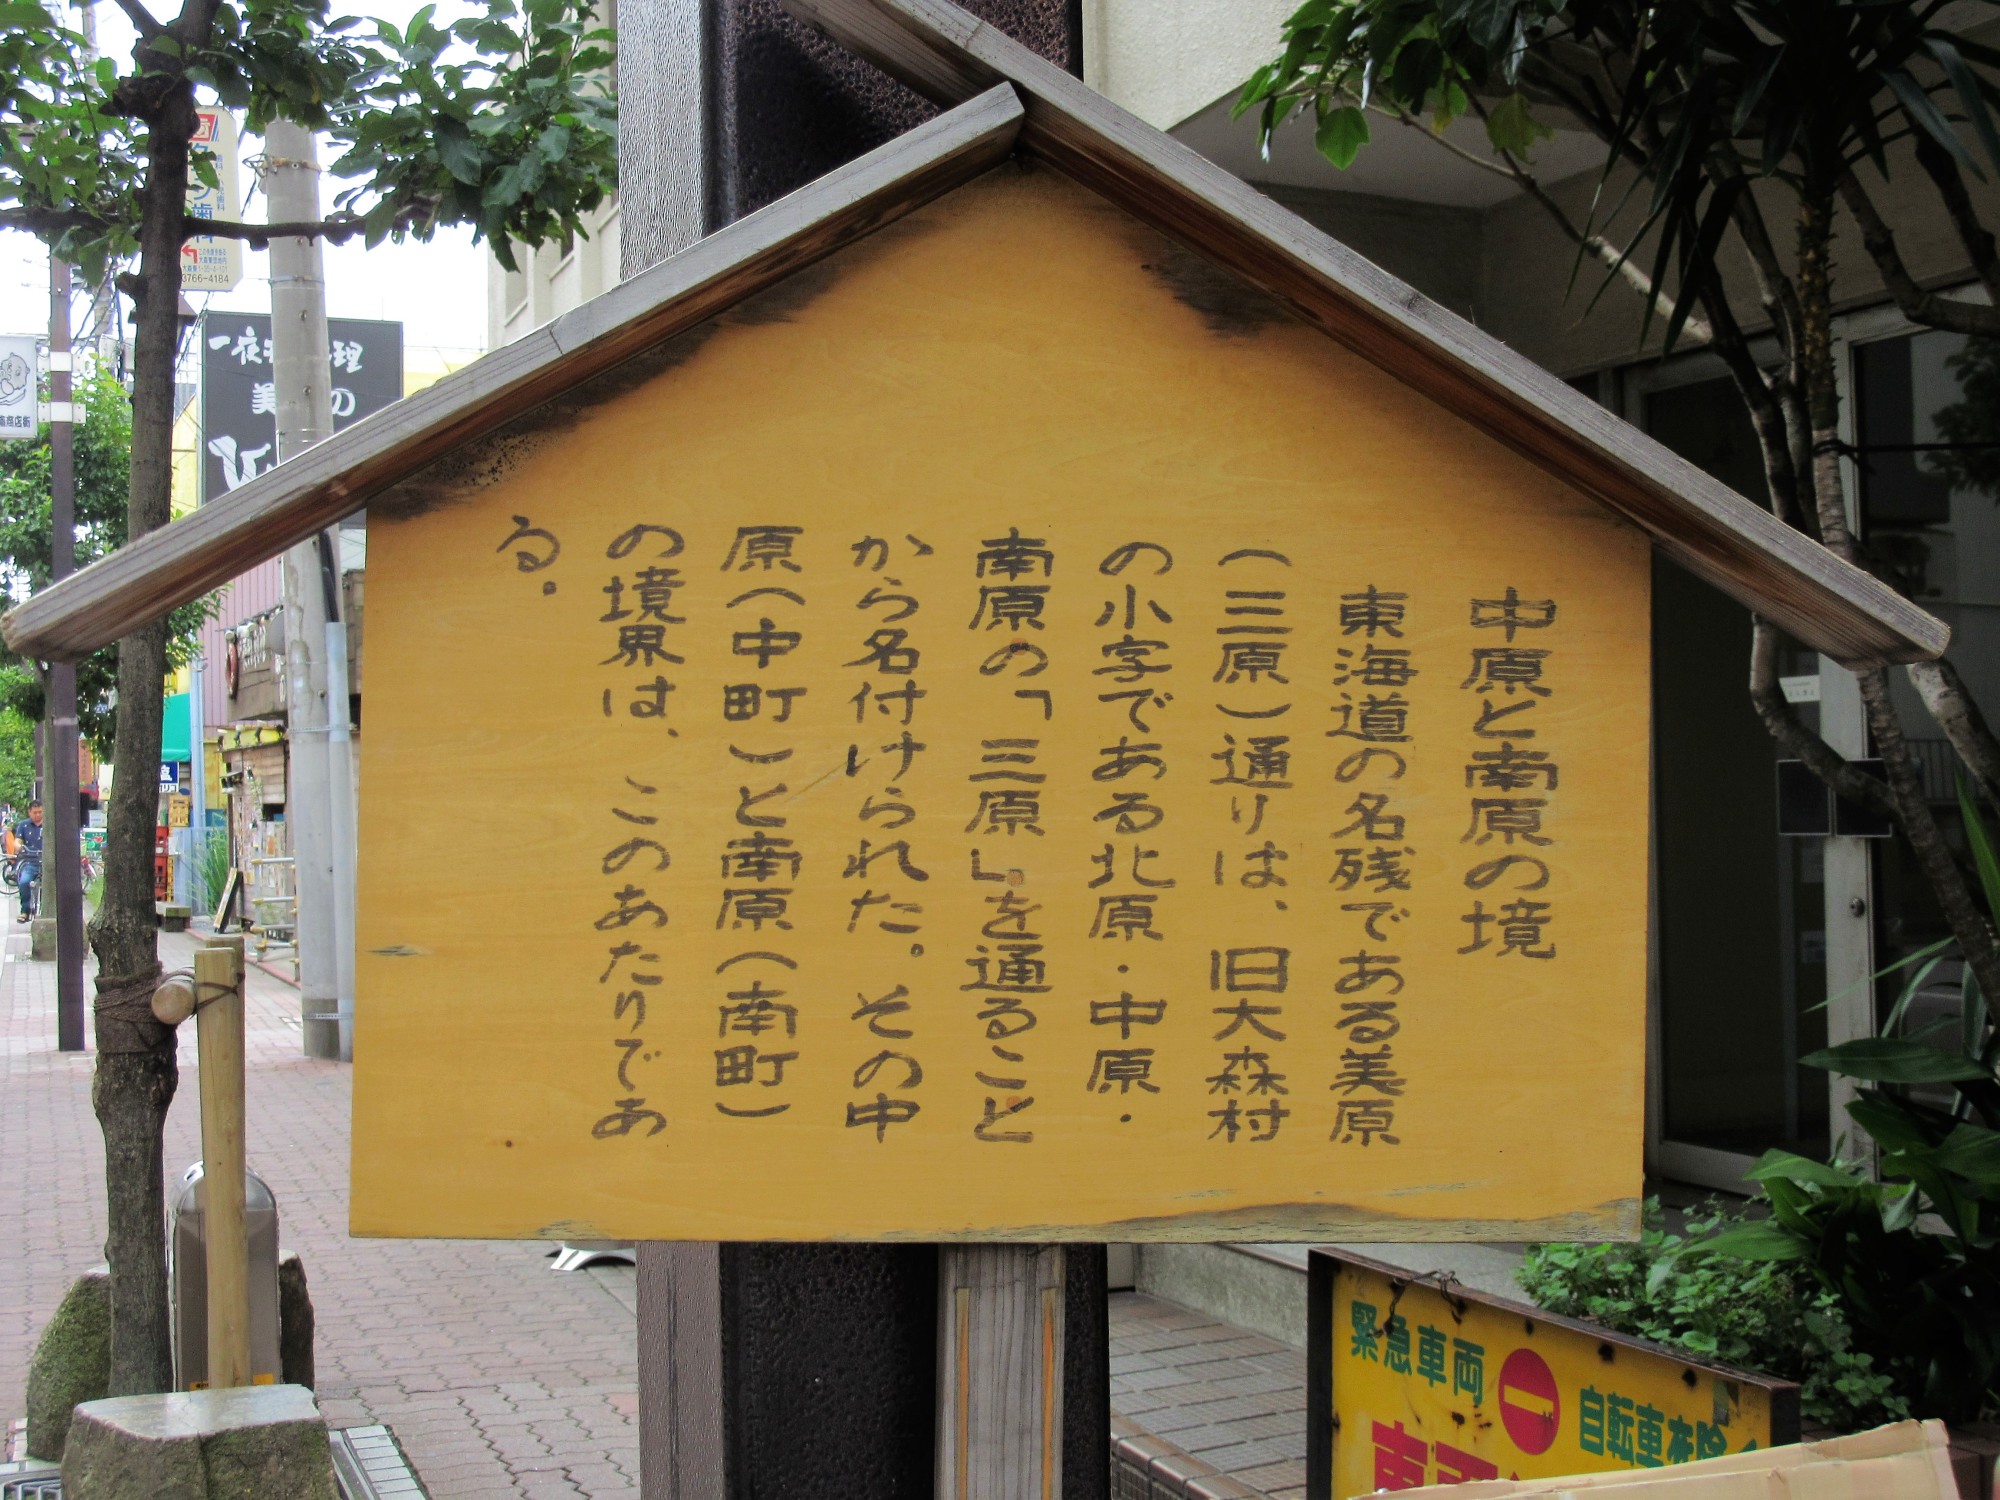 中原と南原の境
東海道の名残である美原
(三原)通りは、旧大森村
の小字である北原・中原・
南原の「三原」を通ること
から名付けられた。その中
原(中町)と南原(南町)
の境界は、このあたりであ
る。
緊急車両
自転車を除く
3766-4184